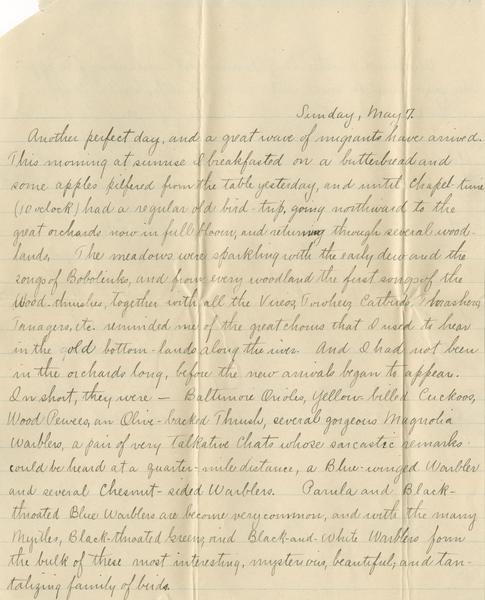 Sunday, May 7.
Another perfect day, and a great wave of migrants have arrived.
This morning at sunrise I breakfasted on a butterbread and
some apples pilfered from the table yesterday, and until chapel-time
(10 o'clock) had a regular old bird-trip, going northward to the
great orchards now in full bloom, and returning through several wood-
lands. The meadows were sparkling with the early dew and the
songs of Bobolinks, and from every woodland the first songs of the
Wood-thrushes, together with all the Vireos, Towhees, Catbirds, Thrashers,
Tanagers, etc. reminded me of the great chorus that I used to hear
in the old bottom-lands along the river. And I had not been
in the orchards long, before the new arrivals began to appear.
In short, they were — Baltimore Orioles, Yellow-billed Cuckoos,
Wood Pewees, an Olive-backed Thrush, several gorgeous Magnolia
Warblers, a pair of very talkative Chats whose sarcastic remarks
could be heard at a quarter-mile distance, a Blue-winged Warbler
and several Chesnut-sided Warblers. Parula and Black-
throated Blue Warblers are become very common, and with the many
Myrtles, Black-throated Greens, and Black-and-White Warblers form
the bulk of these most interesting, mysterious, beautiful, and tan-
talizing family of birds.